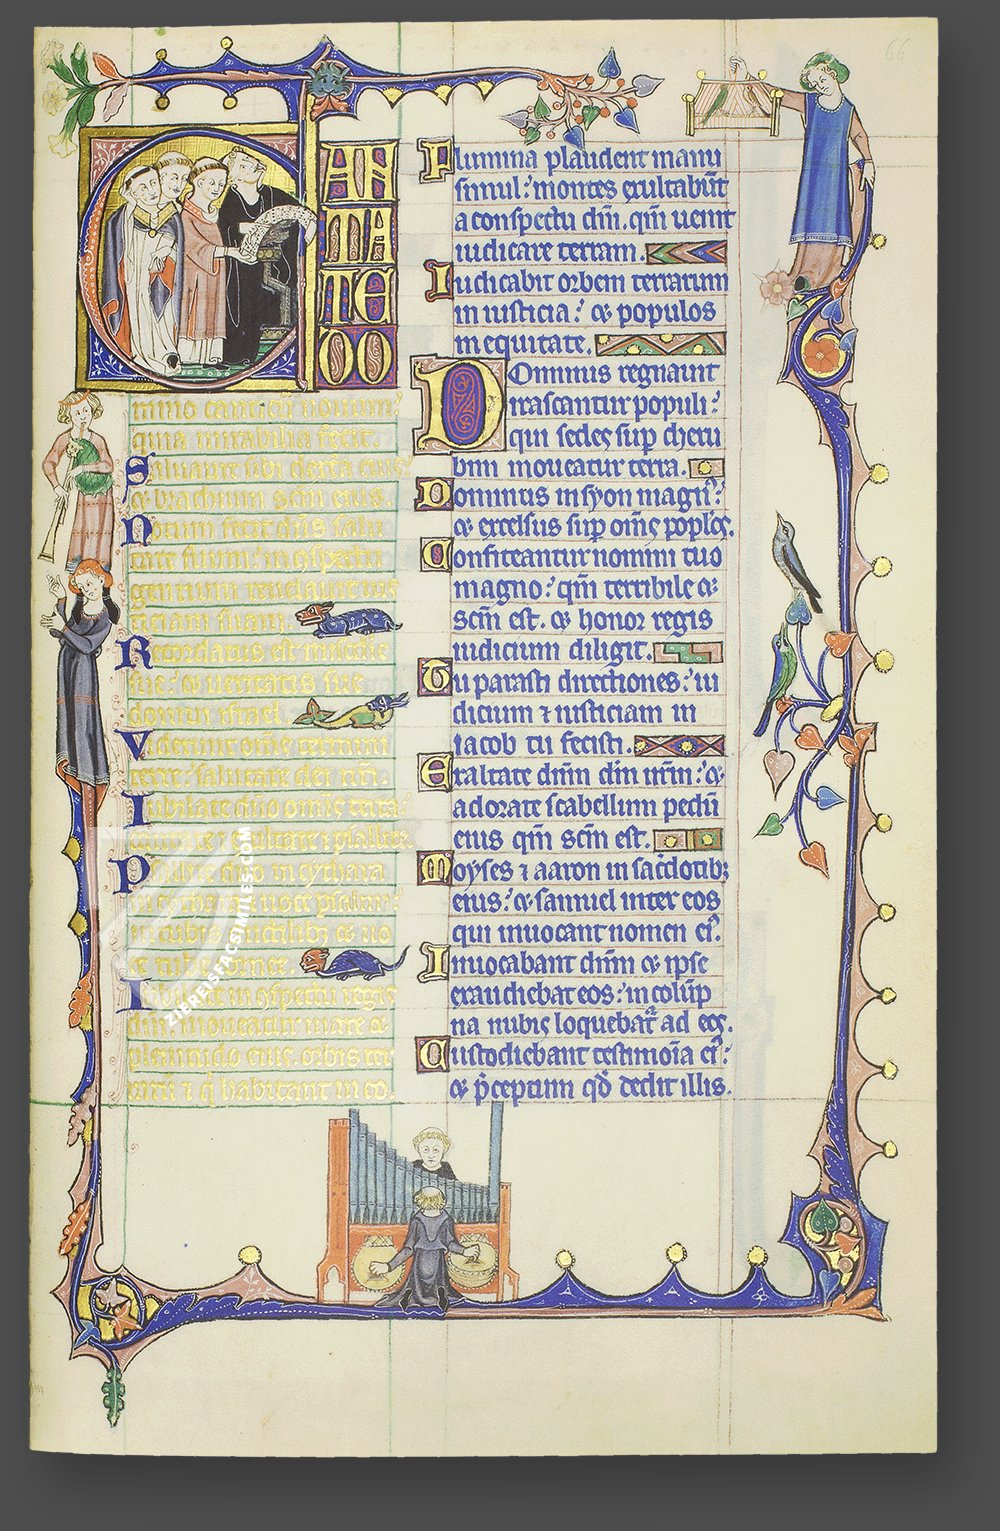 CAN
TA
TE
DO
mino canticū nouum:
quia mirabilia fecit.
Saluauit sibi dextera eius:
& brachium scm̄ eius.
Notum fecit dn̄s salu
tare suum: in
gentium reuelauit ius
ticiam suam.
Recordatus est
sue: & ueritatis sue
domui israel.
Viderunt om̄s termini
terre: salutare dei nr̄i.
Iubilate dn̄o om̄is terra:
Psallite dn̄o in cythara
in
&
Iubilate in regis
dn̄i moueatur mare &
plenitudo eius. orbis ter
rarū & q̇ habitant in eo.
66
Flumina plaudent manu
simul: montes exultabūt
a conspectu dn̄i. qm̄ uenit
iudicare terram.
Iudicabit orbem terrarum
in iusticia: & populos
in equitate.
Dominus regnauit
irascantur populi:
qui sedes sup cheru
bin moueatur terra.
Dominus in syon magn̄:
& excelsus sup om̄s popl'os.
Confiteantur nomini tuo
magno: qm̄ terribile &
scm̄ est. & honor regis
iudicium diligit.
Tu parasti directiones: iu
dicium ⁊ iusticiam in
iacob tu fecisti.
Exaltate dn̄m dm̄ nr̄m: &
adorate scabellum pedū
eius qm̄ scm̄ est.
Moyses ⁊ aaron in sac̄dotib;
eius: & samuel inter eos
qui inuocant nomen ei'.
Inuocabant dn̄m & ipse
exaudiebat eos: in colūp
na nubis loquebat' ad eos.
Custodiebant testimoīa ei':
& p̄ceptum qd̄ dedit illis.
ZIEREIS FACSIMILES.COM